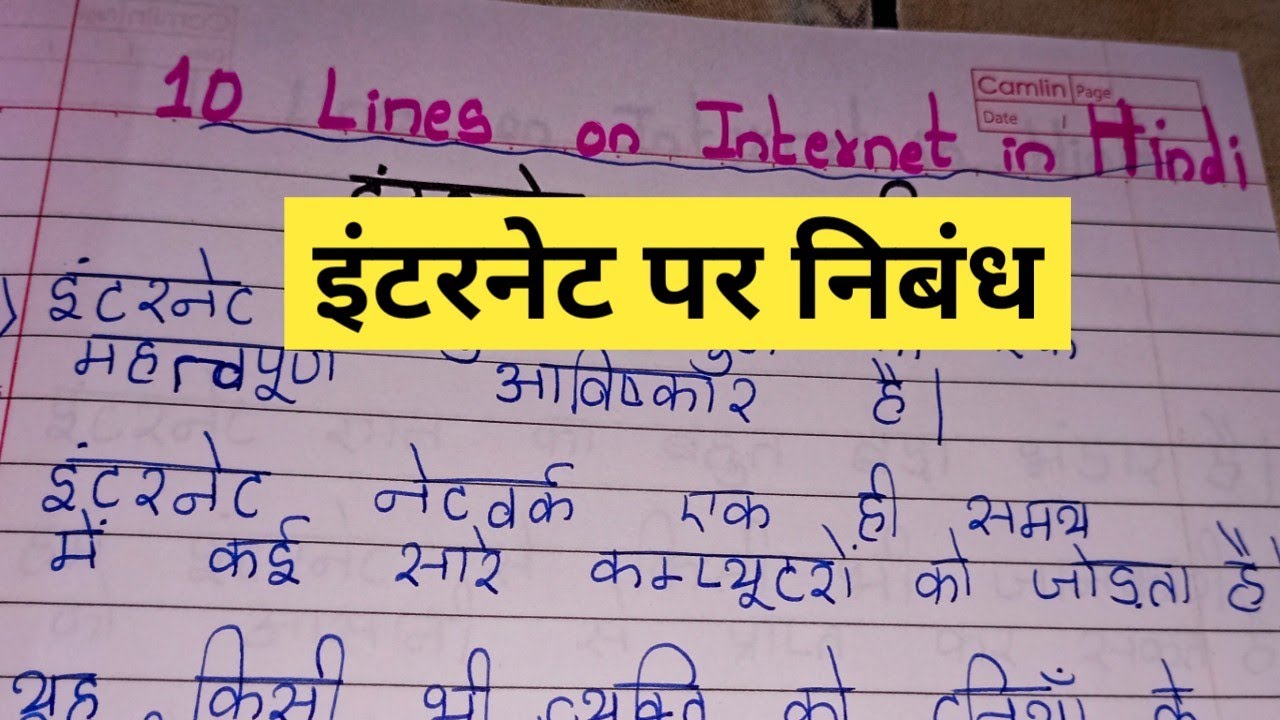 10 Lines on Internet in Hindi
Camlin Page
Date
इंटरनेट पर निबंध
इंटरनेट
महत्वपूर्ण आविष्कार है|
इंटरनेट नेटवर्क एक ही समय
में कई सारे कम्प्यूटरों को जोड़ता है
यह किसी भी व्यक्ति को दुनियाँ के